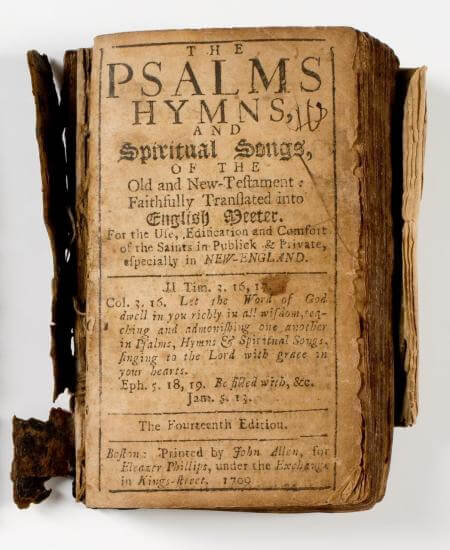 THE
PSALMS
HYMNS,
AND
Spiritual Songs,
OF THE
Old and New-Testament:
Faithfully Translated into
English Meeter.
For the Use, Edification and Comfort
of the Saints in Publick & Private,
especially in NEW-ENGLAND.
II Tim. 3. 16, 17.
Col. 3. 16. Let the Word of God
dwell in you richly in all wisdom, tea-
ching and admonishing one another
in Psalms, Hymns & Spiritual Songs,
singing to the Lord with grace in
your hearts.
Eph. 5. 18, 19. Be filled with, &c.
Jam. 5. 13.
The Fourteenth Edition.
Boston: Printed by John Allen, for
Eleazer Phillips, under the Exchange
in Kings-street. 1709